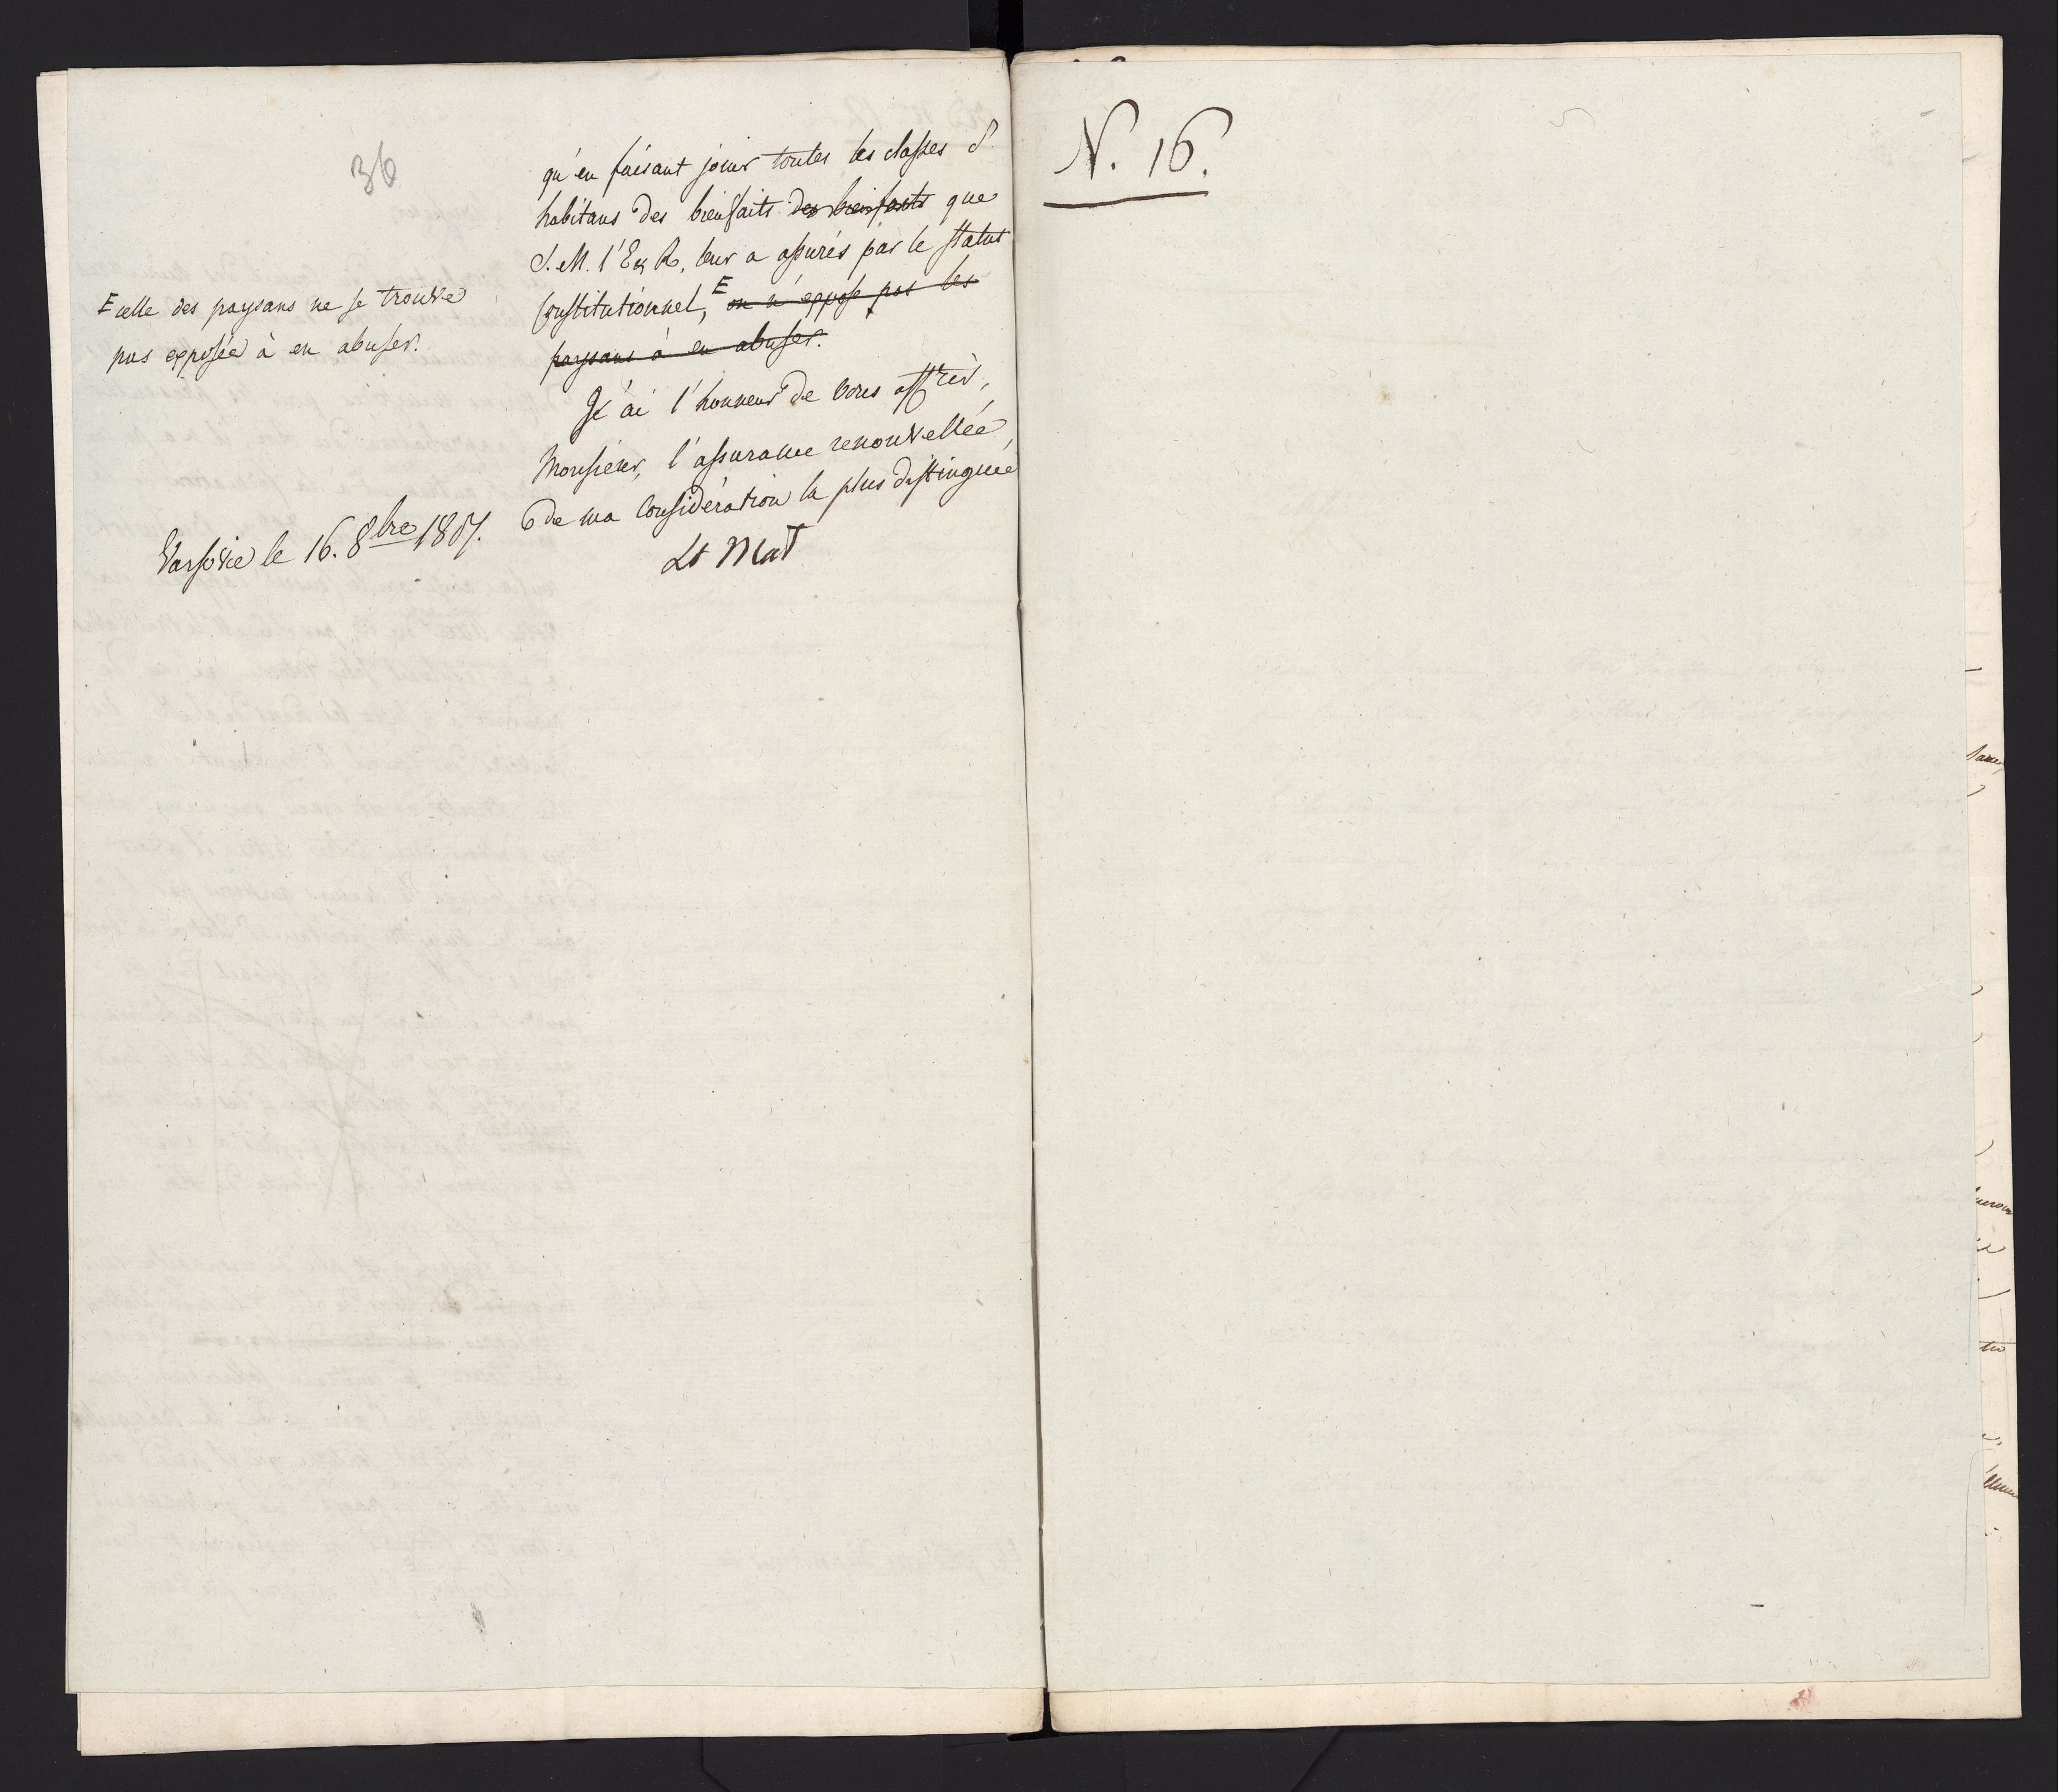 36
qu'en faisant jouir toutes les classes d'
habitans des bienfaits des bienfaits que
S. M. l'E & R. leur a assurés par le statut
constitutionnel, E on n'expose pas les
paysans à en abuser.
E celle des paysans ne se trouve
pas exposée à en abuser.
J'ai l'honneur de vous offrir,
Monsieur, l'assurance renouvellée,
de ma considération la plus distinguée
Varsovie le 16. 8bre 1807.
Lt Mat
N. 16.